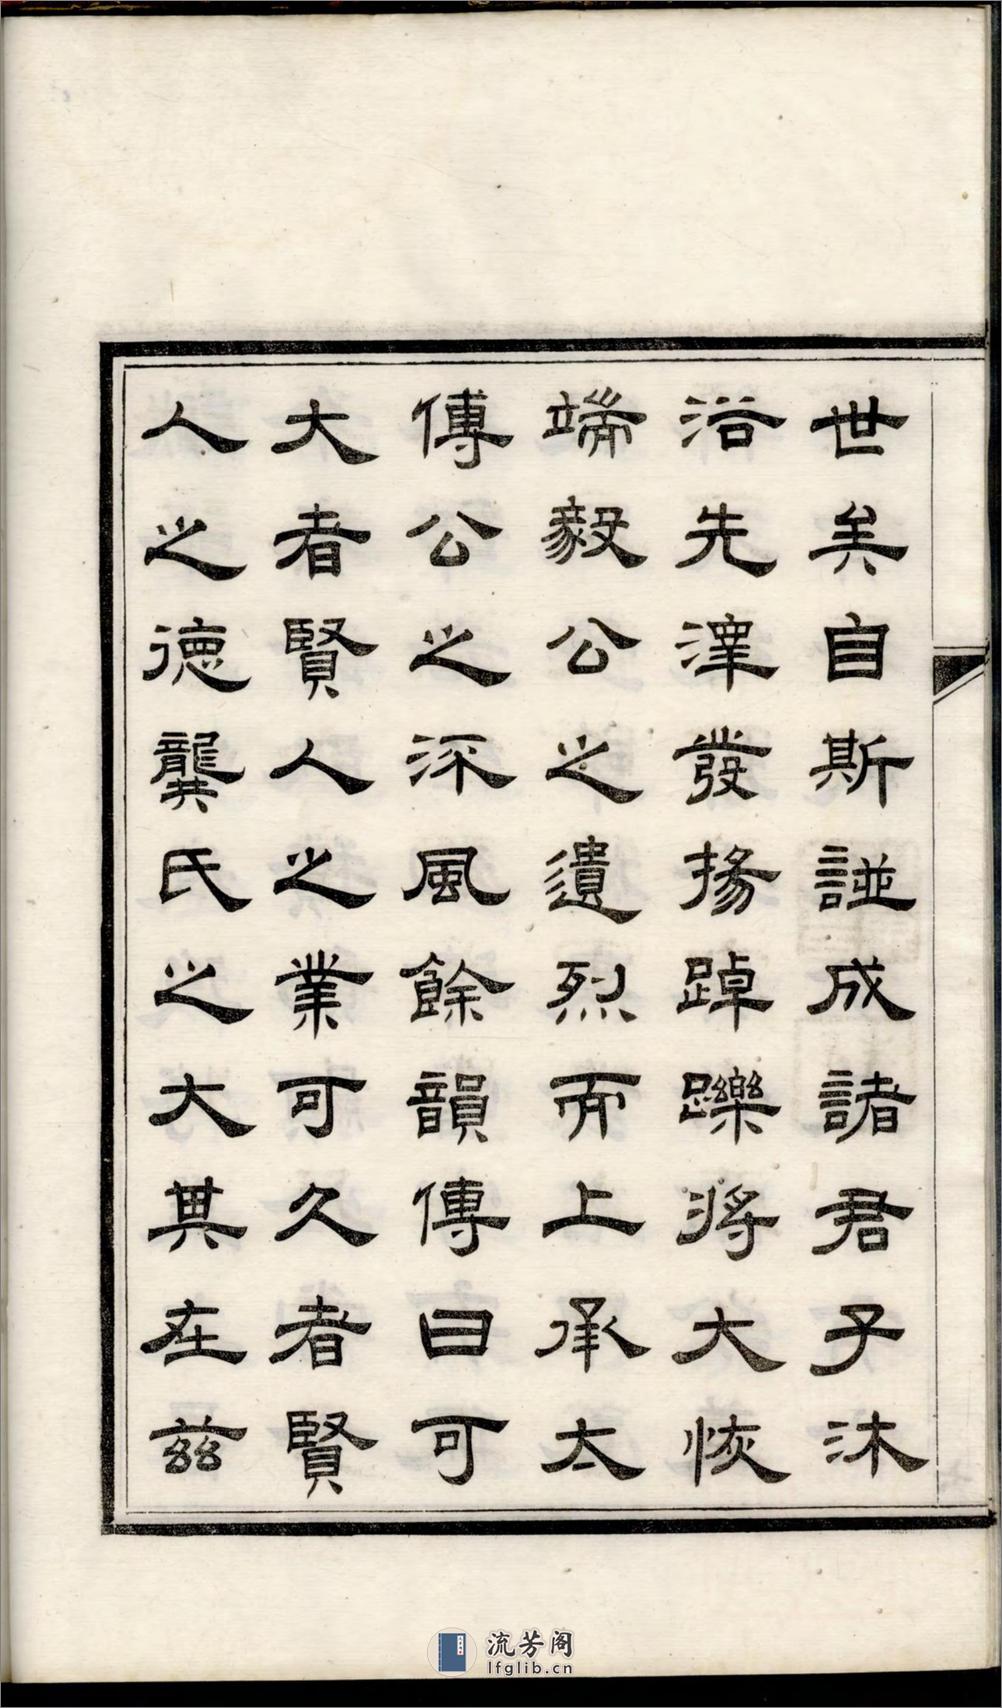 世矣自斯諩成諸君子沐
浴先澤發揚踔躒將大恢
端毅公之遺烈而上承太
傅公之深風餘韻傳曰可
大者賢人之業可久者賢
人之德龔氏之大其在茲
流芳阁
lfglib.cn